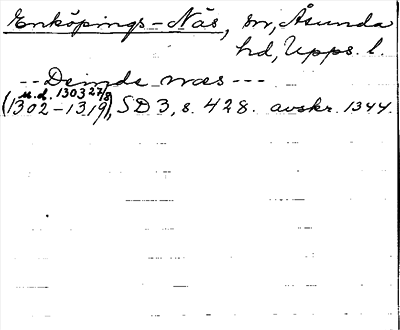 Enköpings-Näs, sn, Åsunda
hd, Upps. l.
-- Deinde næs ---
u.d. 1303 27/8
(1302-1319), SD 3, s. 428. avskr. 1344.